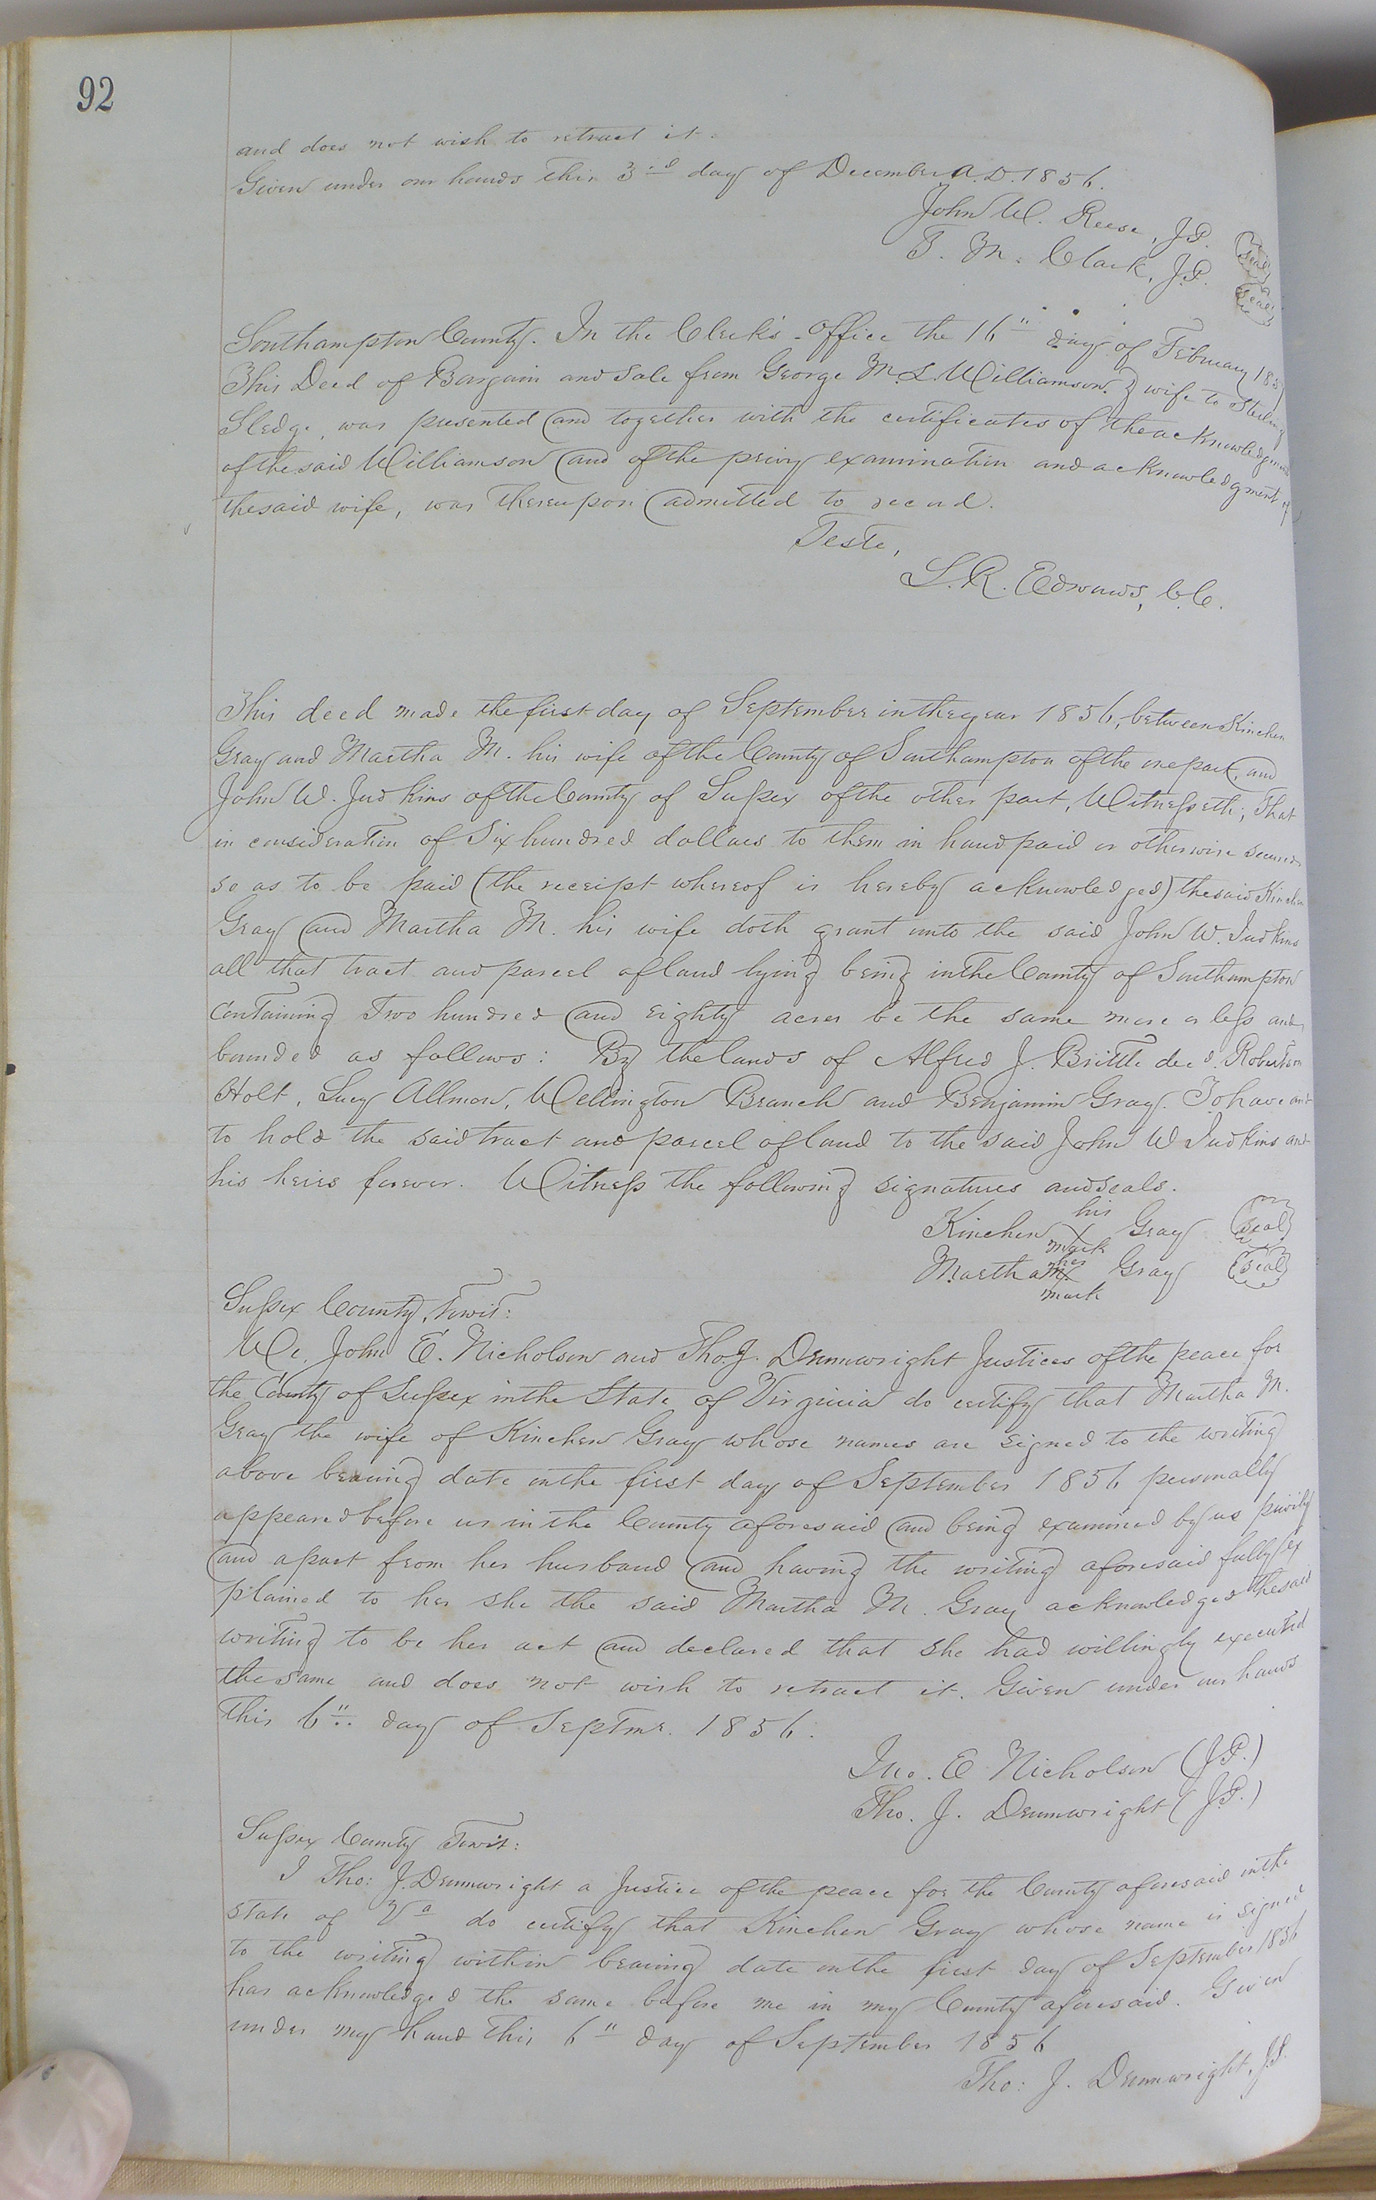 92
and does not wish to retract it.
Given under our hands this 3rd day of December A.D. 1856.
John W. Reese, J.P. (Seal)
T. M. Clack, J.P. (Seal)
Southampton County. In the Clerk's Office the 16" day of February 185
This Deed of Bargain and Sale from George M. L. Williamson & wife to Sterling
Sledge, was presented and together with the certificates of the acknowledgment
of the said Williamson and of the privy examination and acknowledgment of
the said wife, was thereupon admitted to record.
Teste,
L. R. Edwards, C.C.
This deed made the first day of September in the year 1856, between Kinchen
Gray and Martha M. his wife of the County of Southampton of the one part, and
John W. Judkins of the County of Sussex of the other part, Witnesseth; That
in consideration of Six hundred dollars to them in hand paid or otherwise secured
so as to be paid (the receipt whereof is hereby acknowledged) the said Kinchen
Gray and Martha M. his wife doth grant unto the said John W. Judkins
all that tract and parcel of land lying & being in the County of Southampton
containing Two hundred and eighty acres be the same more or less and
bounded as follows: By the lands of Alfred J. Brittle decd. Robertson
Holt, Lucy Allmon, Wellington Branch and Benjamin Gray. To have and
to hold the said tract and parcel of land to the said John W Judkins and
his heirs forever. Witness the following signatures and seals.
his
Kinchen X Gray (Seal)
mark
her
Martha M X Gray (Seal)
mark
Sussex County, Towit:
We, John E. Nicholson and Tho. J. Drumwright Justices of the peace for
the County of Sussex in the State of Virginia do certify that Martha M.
Gray the wife of Kinchen Gray whose names are signed to the writing
above bearing date on the first day of September 1856 personally
appeared before us in the County aforesaid and being examined by us privily
and apart from her husband and having the writing aforesaid fully ex
plained to her she the said Martha M. Gray acknowledged the said
writing to be her act and declared that she had willingly executed
the same and does not wish to retract it. Given under our hands
this 6" day of Septmr. 1856.
Jno. E Nicholson (J.P.)
Tho. J. Drumwright (J.P.)
Sussex County Towit:
I Tho: J. Drumwright a Justice of the peace for the County aforesaid in the
State of Va do certify that Kinchen Gray whose name is signed
to the writing within bearing date on the first day of September 1856
has acknowledged the same before me in my County aforesaid. Given
under my hand this 6" day of September 1856
Tho: J. Drumwright, J.P.